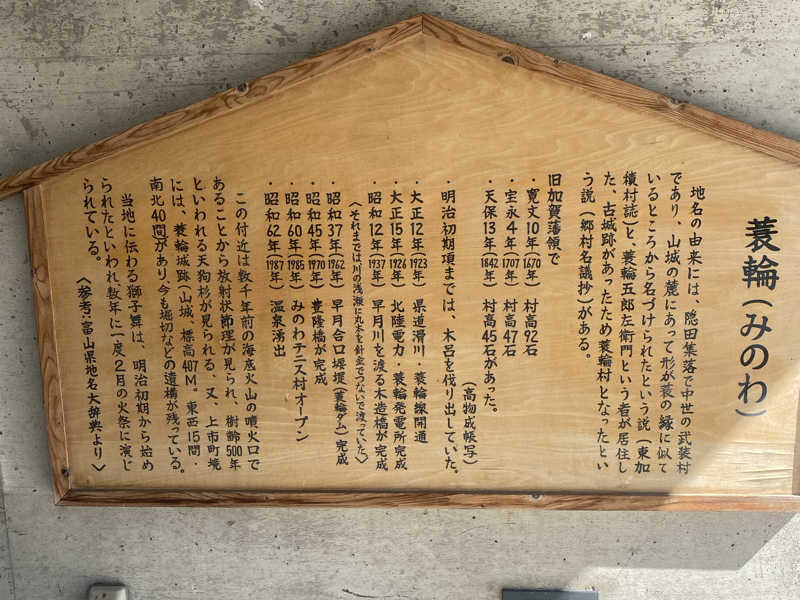 蓑輪(みのわ)
地名の由来には、隠田集落で中世の武装村
であり、山城の麓にあって形が蓑の縁に似て
いるところから名づけられたという説(東加
積村誌)と、蓑輪五郎左衛門という者が居住し
た、古城跡があったため蓑輪村となったとい
う説(郷村名議抄)がある。
旧加賀藩領で
・寛文10年(1670年) 村高92石
・宝永4年(1707年) 村高47石
・天保13年(1842年) 村高45石があった。
(高物成帳写)
・明治初期頃までは、木呂を伐り出していた。
・大正12年(1923年) 県道滑川・蓑輪線開通
・大正15年(1926年) 北陸電力・蓑輪発電所完成
・昭和12年(1937年) 早月川を渡る木造橋が完成
〈それまでは川の浅瀬に丸木を針金でつないで渡っていた〉
・昭和37年(1962年) 早月合口堰堤(蓑輪ダム)完成
・昭和45年(1970年) 豊隆橋が完成
・昭和60年(1985年) みのわテニス村オープン
・昭和62年(1987年) 温泉湧出
この付近は数千年前の海底火山の噴火口で
あることから放射状節理が見られ、樹齢500年
といわれる天狗杉が見られる。又、上市町境
には、蓑輪城跡(山城、標高407M。東西15間・
南北40間)があり、今も堀切などの遺構が残っている。
当地に伝わる獅子舞は、明治初期から始め
られたといわれ、数年に一度2月の火祭に演じ
られている。
〈参考:富山県地名大辞典より〉